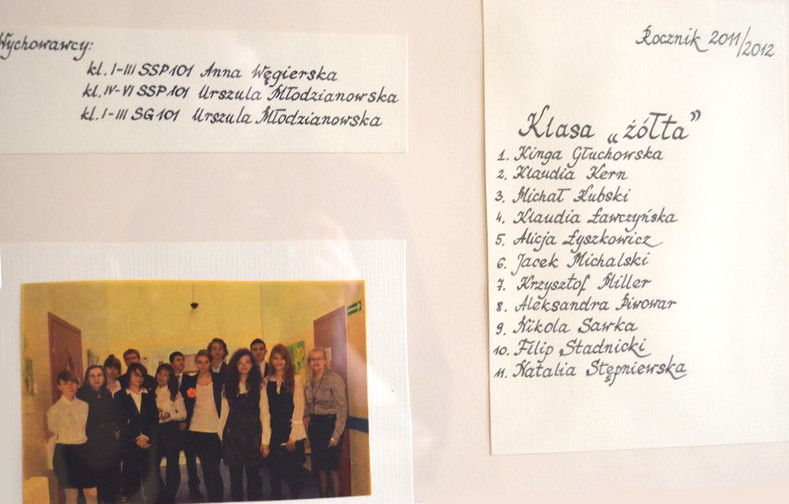 Wychowawcy:
kl. I-III SSP 101 Anna Węgierska
kl. IV-VI SSP 101 Urszula Młodzianowska
kl. I-III SG 101 Urszula Młodzianowska
Rocznik 2011/2012
Klasa „żółta”
1. Kinga Głuchowska
2. Klaudia Kern
3. Michał Kubski
4. Klaudia Ławczyńska
5. Alicja Łyszkowicz
6. Jacek Michalski
7. Krzysztof Miller
8. Aleksandra Piwowar
9. Nikola Sawka
10. Filip Stadnicki
11. Natalia Stępniewska